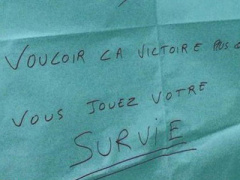 VOULOIR LA VICTOIRE PLUS
VOUS JOUEZ VOTRE
SURVIE